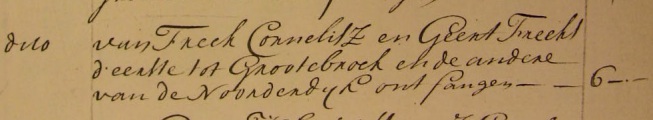 dito van Freek Cornelisz en Geert Freeks
d'eerste tot Grootebroek en de andere
van de Noorderdyk ontfangen — — 6 — . —